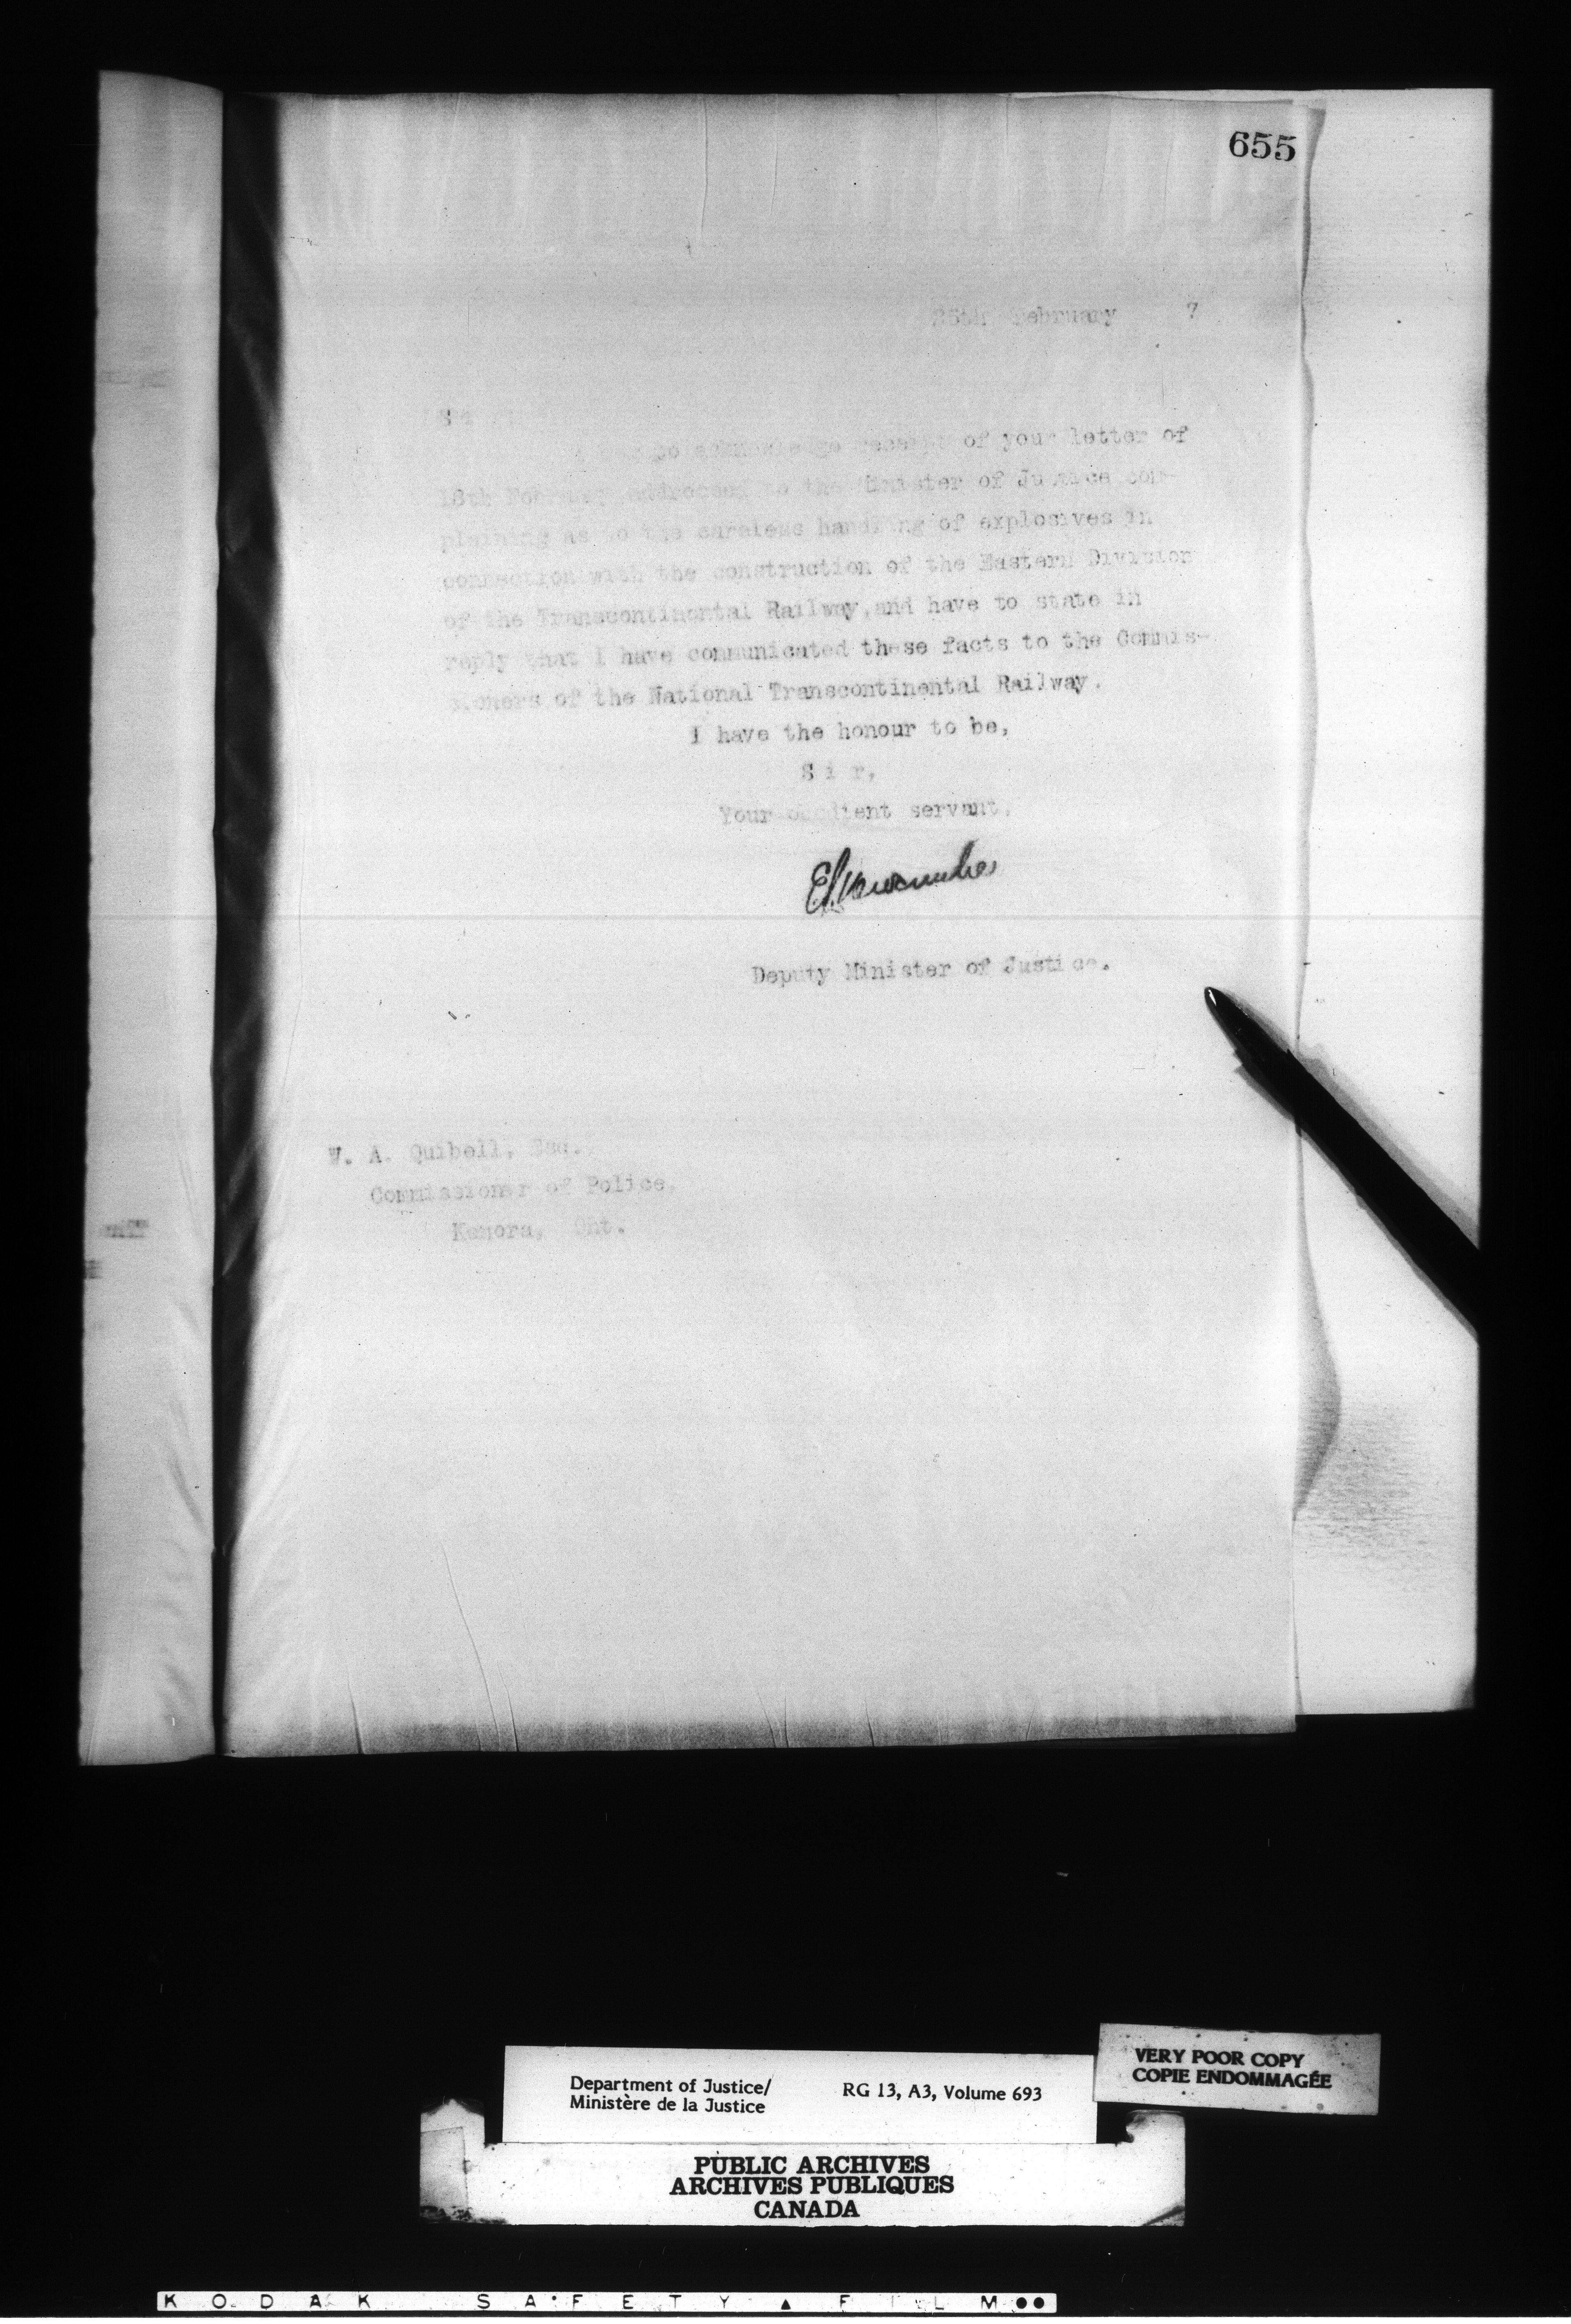 655
25th February 7
S
to acknowledge receipt of your letter of
18th February addressed to the Minister of Justice com-
plaining as to the careless handling of explosives in
connection with the construction of the Eastern Division
of the Transcontinental Railway, and have to state in
reply that I have communicated these facts to the Commis-
sioners of the National Transcontinental Railway.
I have the honour to be,
S i r,
Your obedient servant,
E.L. Newcombe
Deputy Minister of Justice.
W. A. Quibell, Esq.,
Commissioner of Police,
Kenora, Ont.
VERY POOR COPY
COPIE ENDOMMAGÉE
Department of Justice/ RG 13, A3, Volume 693
Ministère de la Justice
PUBLIC ARCHIVES
ARCHIVES PUBLIQUES
CANADA
KODAK SAFETY ▲ FILM ●●